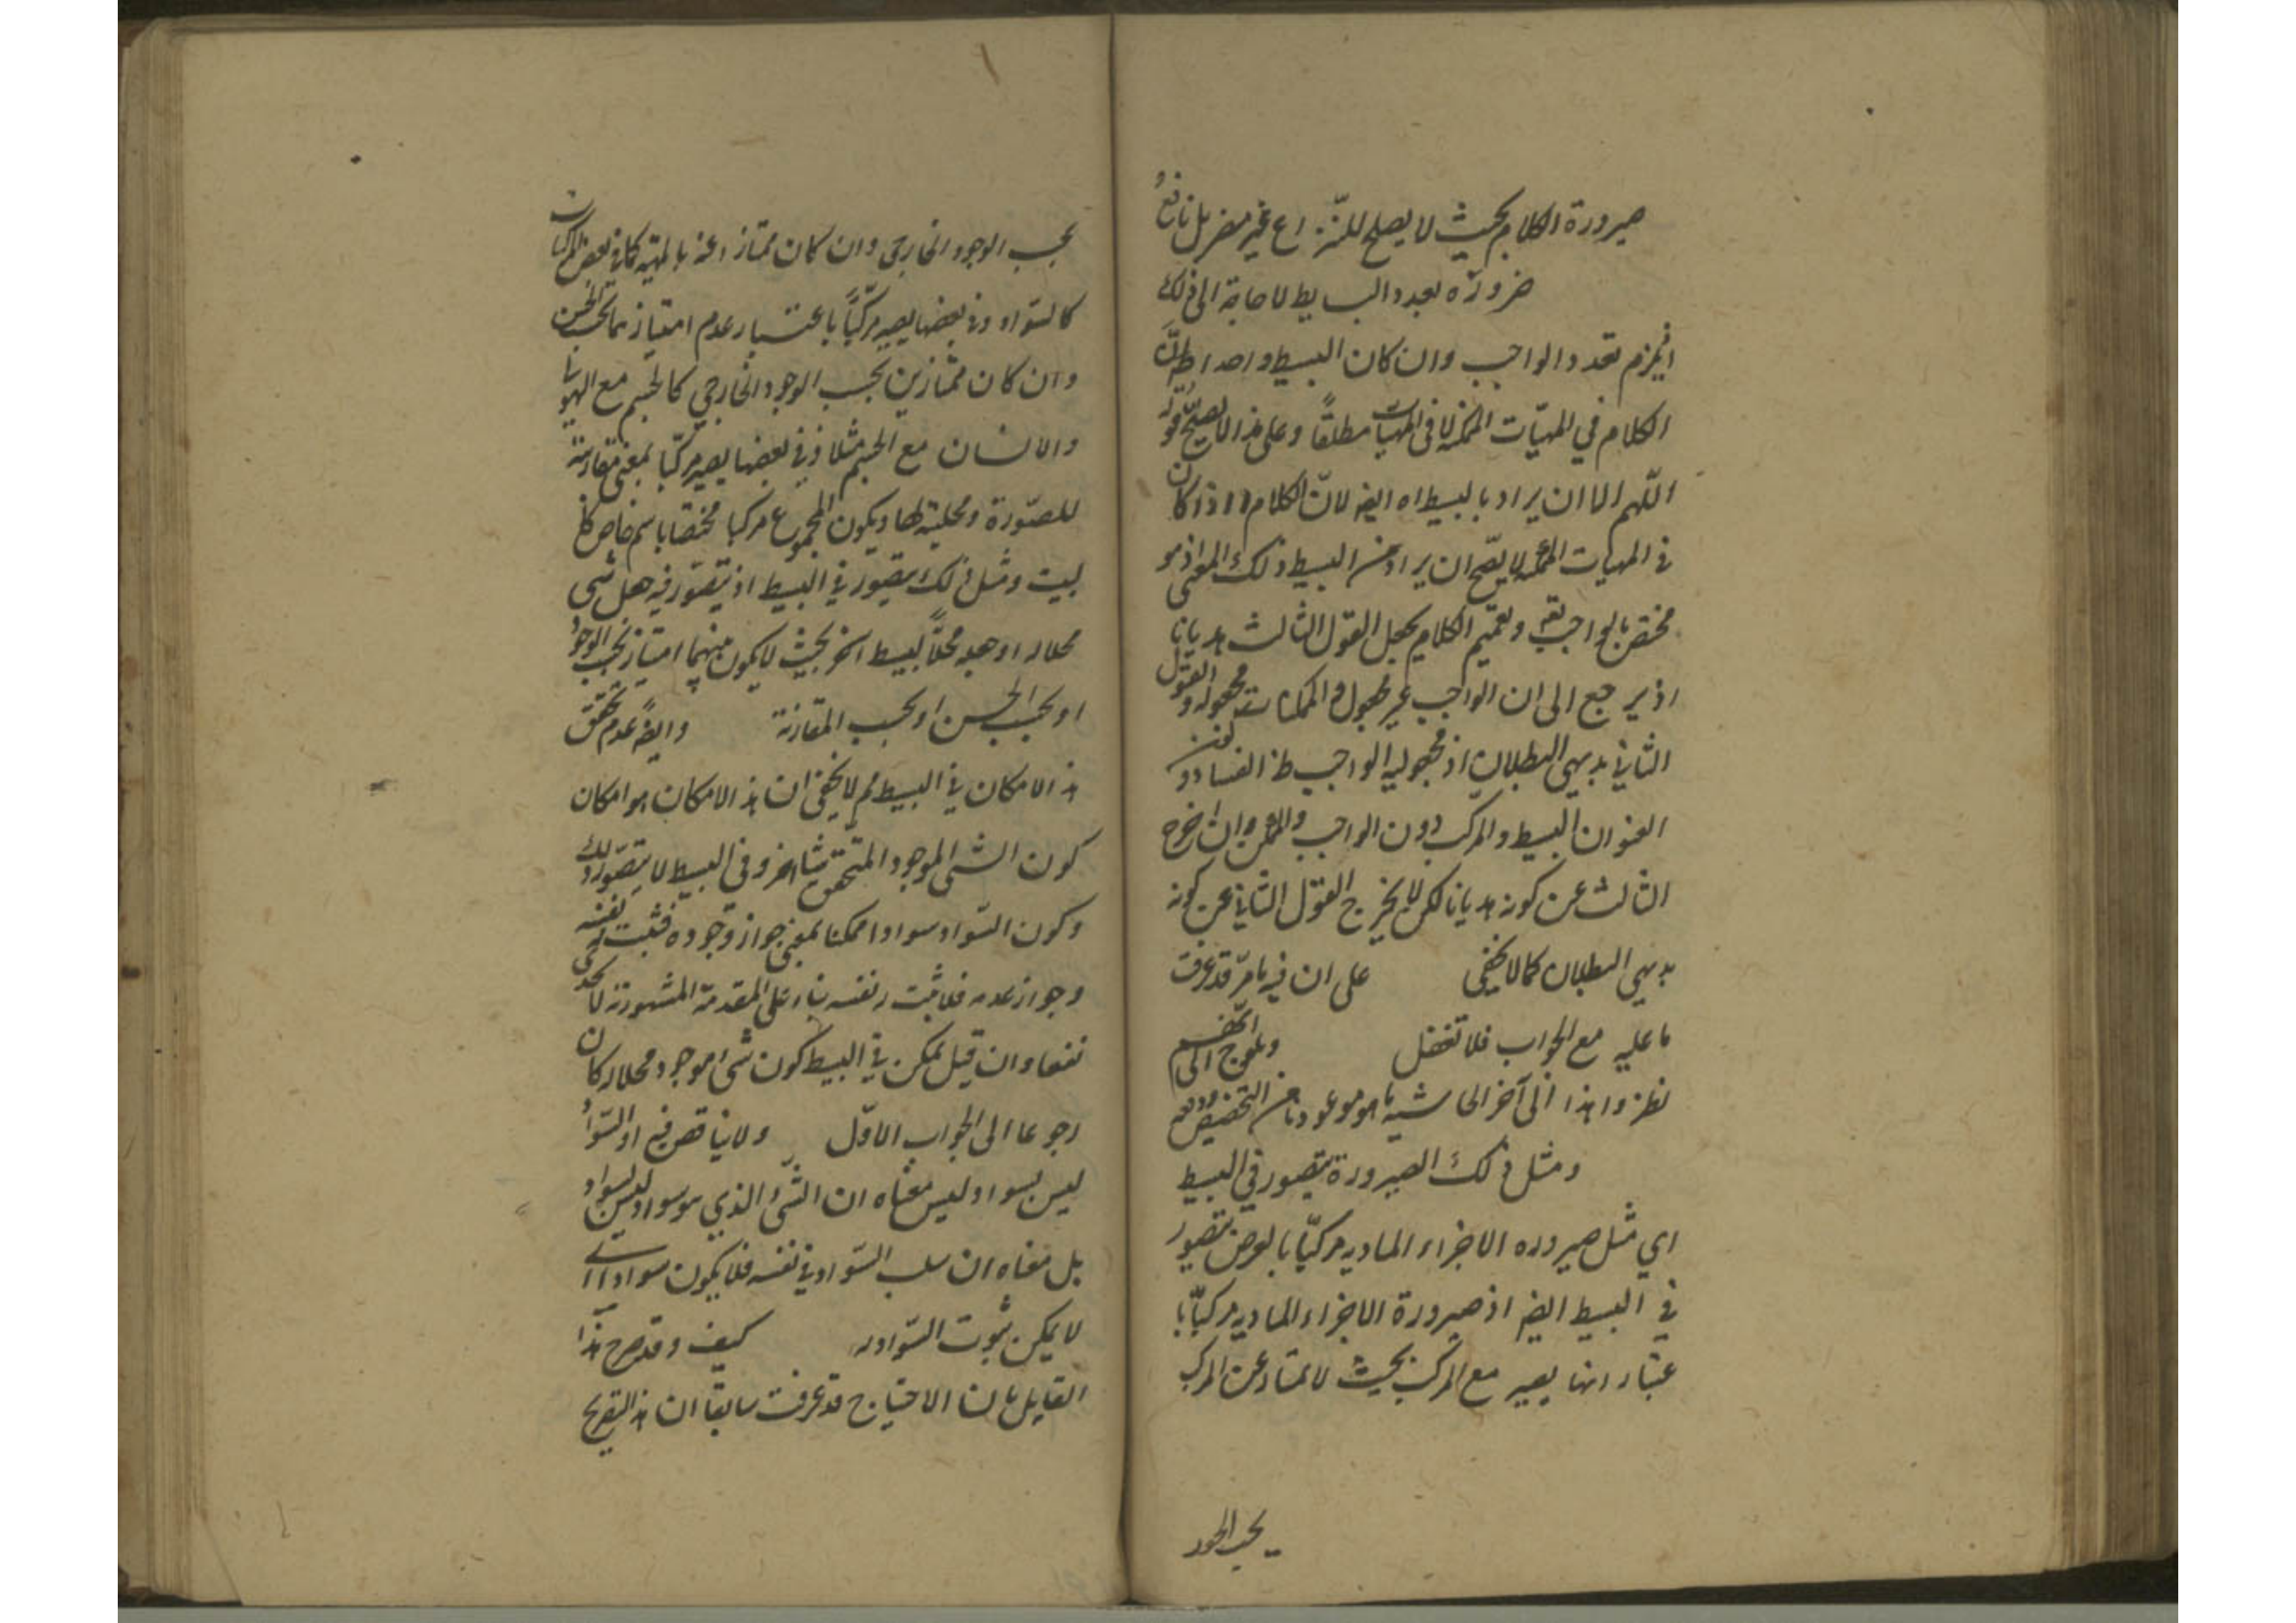 صيرورة الكلام بحيث لا يصلح للنزاع غير مضر بل نافع
ضرورة تعدد البسايط لا حاجة الى ذلك
اذ يلزم تعدد الواجب وان كان البسيط واحدا
الكلام في المهيّات الممكنة لا في المهيات مطلقاً وعلى هذا لا يصحّ قوله
اللّهم الا ان يراد بالبسيط اه ايضا لانّ الكلام اذا كان
في المهيات الممكنة لا يصّح ان يراد من البسيط ذلك المعنى اذ هو
مختص بالواجب تعم وتعميم الكلام يجعل القول الثالث هديانا
اذ يرجع الى ان الواجب غير مجعول والممكنات مجعولة والقول
الثاني بديهي البطلان اذ مجعولية الواجب ظ الفساد وكون
العنوان البسيط والمركب دون الواجب والممكن وان اخرج
الثالث عن كونه هديانا لكن لا يخرج القول الثاني عن كونه
بديهي البطلان كما لا يخفى على ان فيه ما مرّ قد عرفت
ما عليه مع الجواب فلا تغفل
نظر واهذا الى آخر الحاشية
ومثل ذلك الصيرورة يتصور في البسيط
اي مثل صيروره الاجزاء الماديه مركبّا بالعرض يتصور
في البسيط ايضا اذ صيرورة الاجزاء الماديه مركبّا با
عتبار انها يصير مع المركب بحيث لا يمتاز عن المركب
بحسب الوجود
بحسب الوجود الخارجي وان كان ممتازا عنه بالمهيّة كما في بعض المركبات
كالسّواد وفي بعضها يصير مركبّاً باعتبار عدم امتيازهما بحسب الحسّ
وان كان ممتازين بحسب الوجود الخارجي كالجسم مع الهيولى
والانسان مع الجسم مثلا وفي بعضها يصير مركبّا بمعنى مقارنته
للصّورة ومحليته لها ويكون المجموع مركبا مختصّا باسم خاص كا
لبيت ومثل ذلك يتصور في البسيط اذ يتصّور فيه هل شى
محلا له او هو محلاًّ لبسيط اخر بحيث لا يكون بينهما امتياز بحسب الوجود
او بحسب الحسن او بحسب المقارنة وايضاً عدم تحقق
هذا الامكان في البسيط ثم لا يخفى ان هذا الامكان هو امكان
كون الشى الموجود المتحقق شيئا اخر وفي البسيط لا يتصّور ذلك
وكون السّواد سوادا ممكنا بمعنى جواز وجوده فثبت له نفسه
وجواز عدمه فلا يثبت له نفسه بناء على المقدمة المشهورة لا يجدى
نفعا وان قيل يمكن في البسيط كون شى موجود محلا له كان
رجوعا الى الجواب الاوّل ولا يناقض فيه اذ السّواد
ليس بسواد وليس معناه ان الشى الذي هو سواد ليس بسواد
بل معناه ان سلب السّواد في نفسه فلا يكون سوادا اى
لا يمكن ثبوت السّواد له كيف وقد صرح هذا
القايل بان الاحتياج قد عرفت سابقا ان هذا التصريح